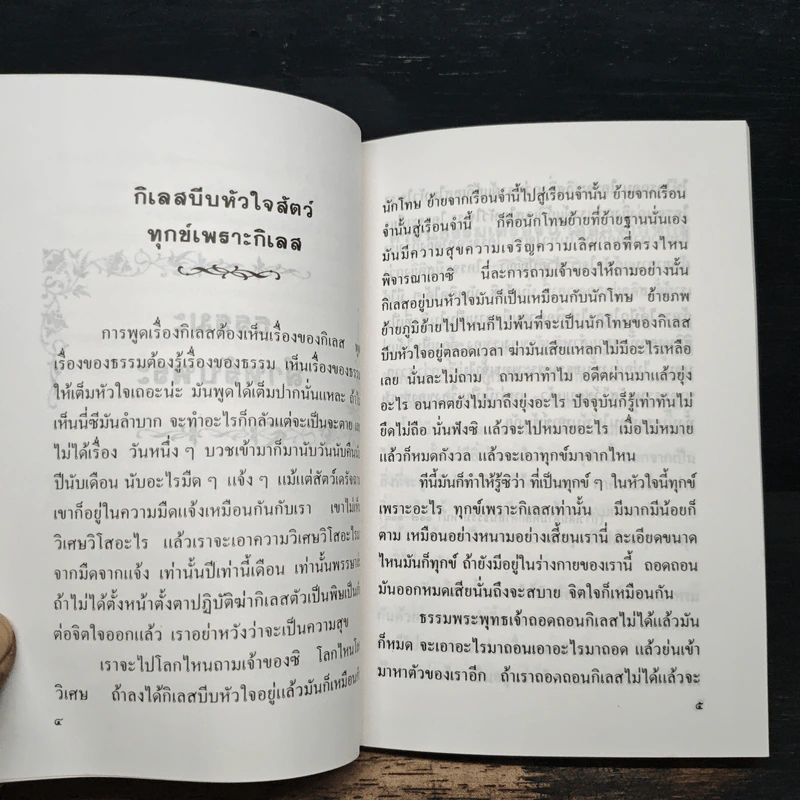 กิเลสบีบหัวใจสัตว์
ทุกข์เพราะกิเลส
การพูดเรื่องกิเลสต้องเห็นเรื่องของกิเลส พูด
เรื่องของธรรมต้องรู้เรื่องของธรรม เห็นเรื่องของธรรม
ให้เต็มหัวใจเถอะน่ะ มันพูดได้เต็มปากนั่นแหละ ถ้าไม่
เห็นนี่ซีมันลำบาก จะทำอะไรก็กลัวแต่จะเป็นจะตาย เลย
ไม่ได้เรื่อง วันหนึ่ง ๆ บวชเข้ามาก็มานับวันนับคืนนับ
ปีนับเดือน นับอะไรมืด ๆ แจ้ง ๆ แม้แต่สัตว์เดรัจฉาน
เขาก็อยู่ในความมืดแจ้งเหมือนกันกับเรา เขาไม่เห็น
วิเศษวิโสอะไร แล้วเราจะเอาความวิเศษวิโสอะไร
จากมืดจากแจ้ง เท่านั้นปีเท่านี้เดือน เท่านั้นพรรษา
ถ้าไม่ได้ตั้งหน้าตั้งตาปฏิบัติฆ่ากิเลสตัวเป็นพิษเป็นภัย
ต่อจิตใจออกแล้ว เราอย่าหวังว่าจะเป็นความสุข
เราจะไปโลกไหนถามเจ้าของซิ โลกไหนโลก
วิเศษ ถ้าลงได้กิเลสบีบหัวใจอยู่แล้วมันก็เหมือนกับ
๔
นักโทษ ย้ายจากเรือนจำนี้ไปสู่เรือนจำนั้น ย้ายจากเรือน
จำนั้นสู่เรือนจำนี้ ก็คือนักโทษย้ายที่ย้ายฐานนั่นเอง
มันมีความสุขความเจริญความเลิศเลอที่ตรงไหน
พิจารณาเอาซิ นี่ละการถามเจ้าของให้ถามอย่างนั้น
กิเลสอยู่บนหัวใจมันก็เป็นเหมือนกับนักโทษ ย้ายภพ
ย้ายภูมิย้ายไปไหนก็ไม่พ้นที่จะเป็นนักโทษของกิเลส
บีบหัวใจอยู่ตลอดเวลา ฆ่ามันเสียแหลกไม่มีอะไรเหลือ
เลย นั่นละไม่ถาม ถามหาทำไม อดีตผ่านมาแล้วยุ่ง
อะไร อนาคตยังไม่มาถึงยุ่งอะไร ปัจจุบันก็รู้เท่าทันไม่
ยึดไม่ถือ นั่นฟังซิ แล้วจะไปหมายอะไร เมื่อไม่หมาย
แล้วก็หมดกังวล แล้วจะเอาทุกข์มาจากไหน
ทีนี้มันก็ทำให้รู้ซิว่า ที่เป็นทุกข์ ๆ ในหัวใจนี้ทุกข์
เพราะอะไร ทุกข์เพราะกิเลสเท่านั้น มีมากมีน้อยก็
ตาม เหมือนอย่างหนามอย่างเสี้ยนเรานี่ ละเอียดขนาด
ไหนมันก็ทุกข์ ถ้ายังมีอยู่ในร่างกายของเรานี้ ถอดถอน
มันออกหมดเสียนั่นถึงจะสบาย จิตใจก็เหมือนกัน
ธรรมพระพุทธเจ้าถอดถอนกิเลสไม่ได้แล้วมัน
ก็หมด จะเอาอะไรมาถอนเอาอะไรมาถอด แล้วย่นเข้า
มาหาตัวของเราอีก ถ้าเราถอดถอนกิเลสไม่ได้แล้วจะ
๕